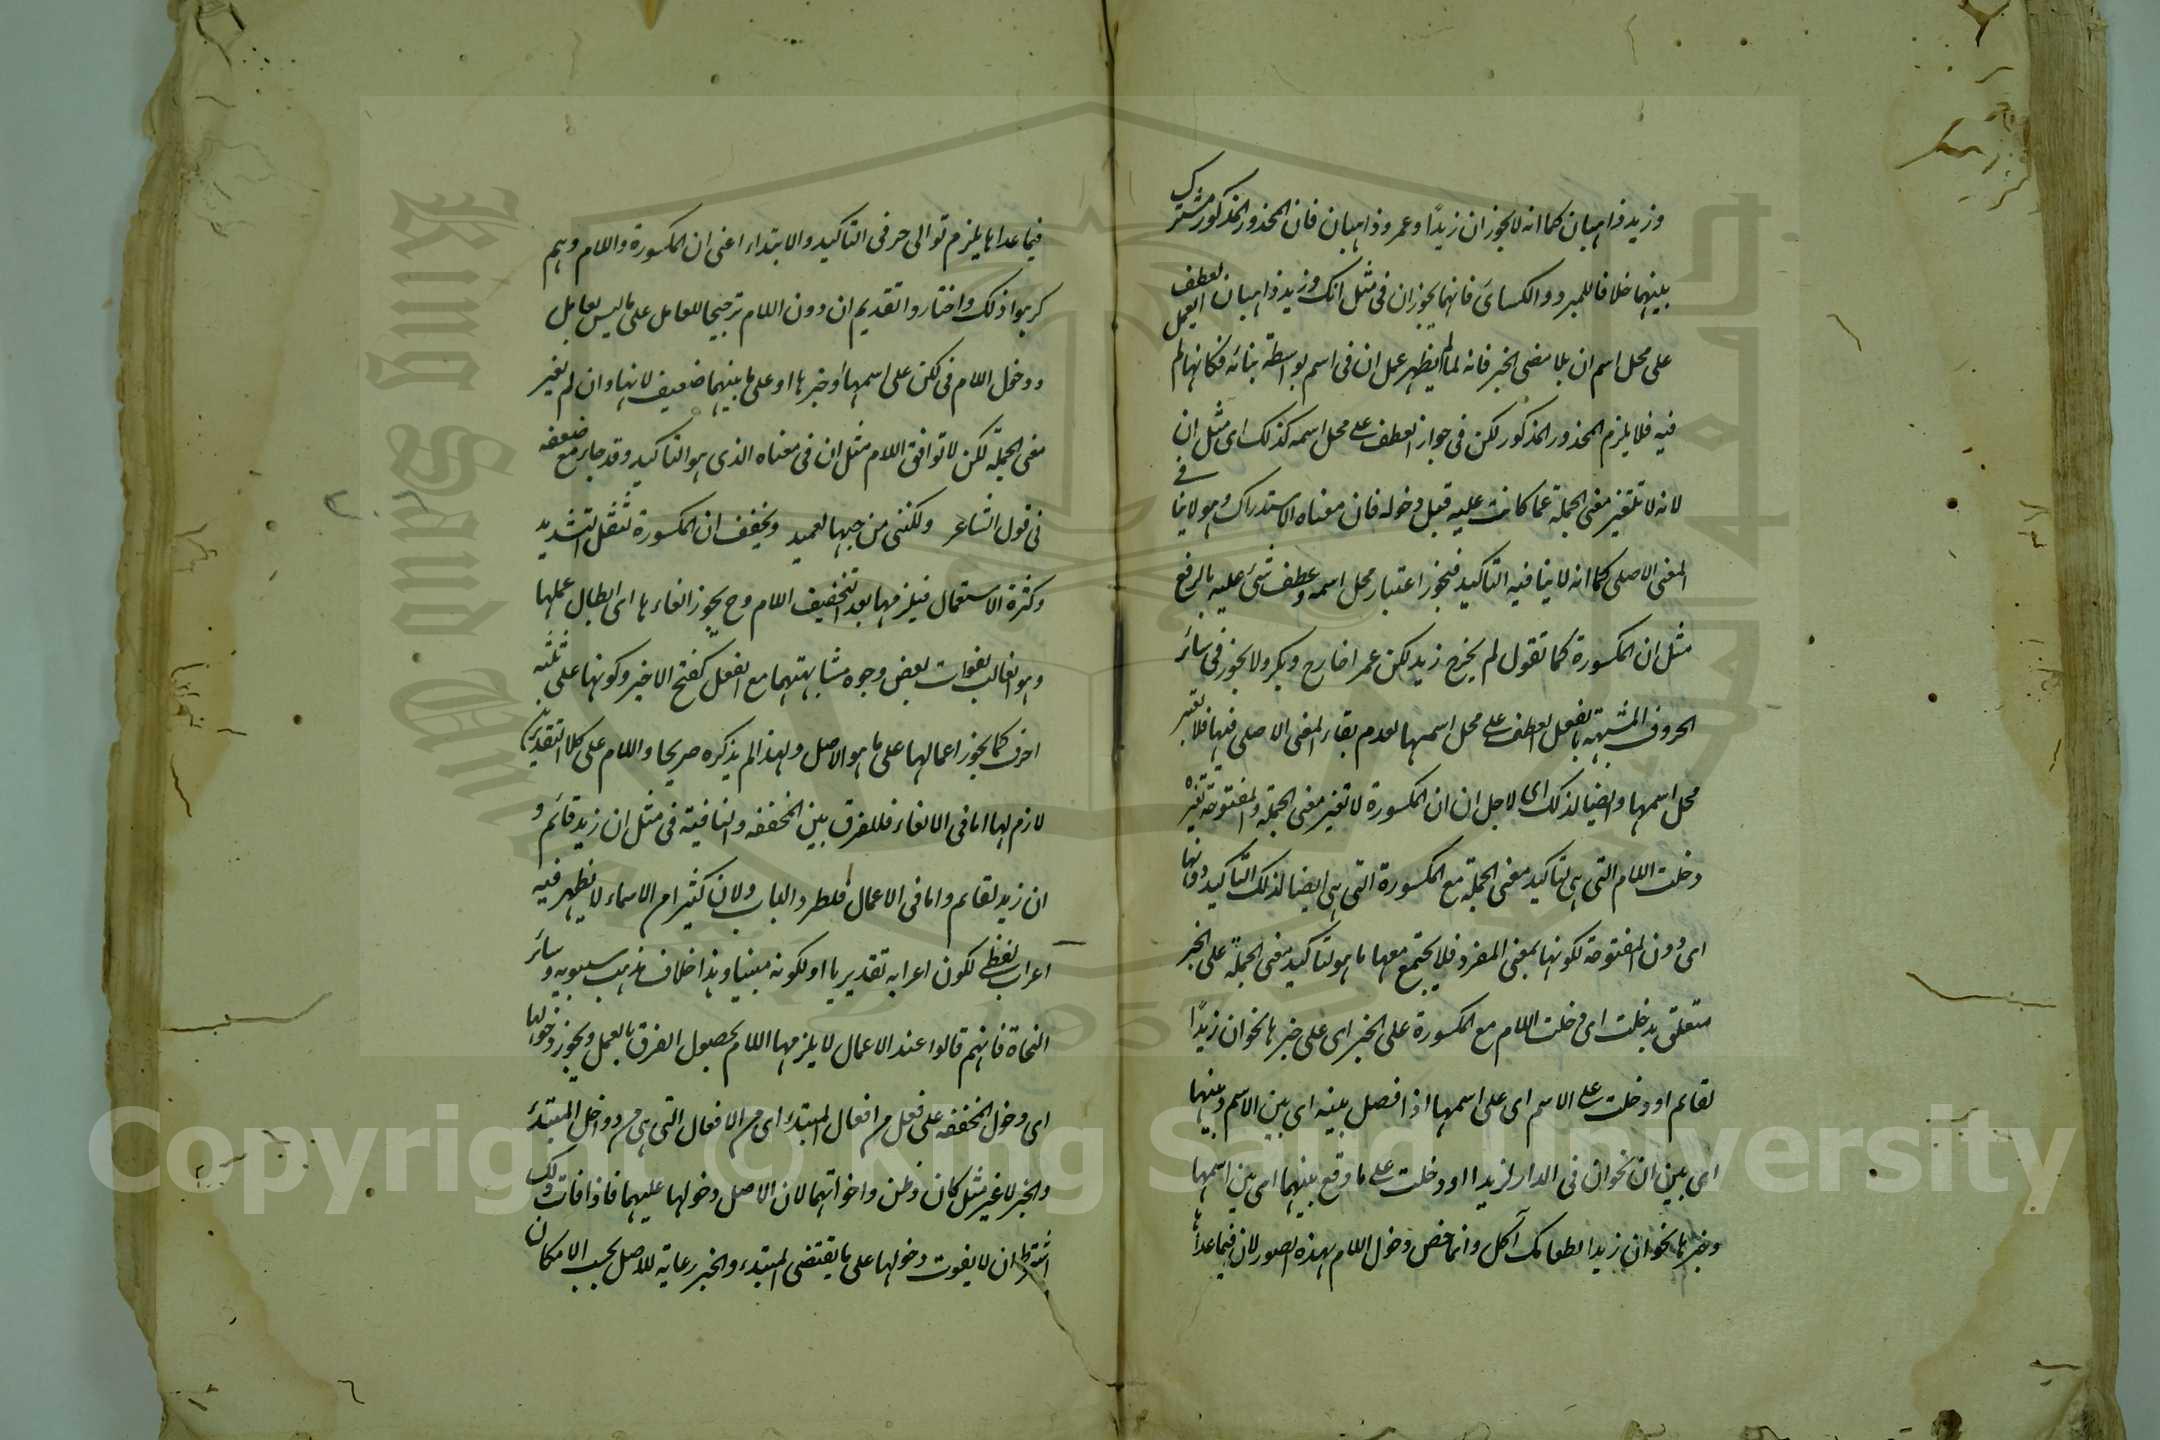 وزيد ذاهبان كما انه لا يجوز ان زيدًا وعمرو ذاهبان فان المحذور المذكور مشترك
بينهما خلافا للمبرد والكسائي فانهما يجوزان في مثل انك وزيد ذاهبان العطف
على محل اسم ان بلا مضى الخبر فانه لما لم يظهر عمل ان في اسم بواسطة بنائه فكانها لم تعمل
فيه فلا يلزم المحذور المذكور لكن في جواز العطف على محل اسمه كذلك اى مثل ان
لانه لا تتغير معنى الجملة عما كانت عليه قبل دخوله فان معناه الاستدراك وهو لا ينافى
المعنى الاصلى كما انه لا ينافيه التاكيد فيجوز اعتبار محل اسمه وعطف شئ عليه بالرفع
مثل ان المكسورة كما تقول لم يخرج زيد لكن عمرا خارج وبكر ولا يجوز في سائر
الحروف المشبهة بالفعل العطف على محل اسمها لعدم بقاء المعنى الاصلى فيها فلا تعتبر
محل اسمها وايضا لذلك اى لاجل ان ان المكسورة لا تغير معنى الجملة والمفتوحة تغيره
دخلت اللام التى هى لتاكيد معنى الجملة مع المكسورة التى هى ايضا لذلك التاكيد دونها
اى دون المفتوحة لكونها بمعنى المفرد فلا يجتمع معها ما هو لتاكيد معنى الجملة على الخبر
متعلق بدخلت اى دخلت اللام مع المكسورة على الخبر اى على خبرها نحو ان زيدًا
لقائم او دخلت على الاسم اى على اسمها اذا فصل بينه اى بين الاسم وبينها
اى بين ان نحو ان في الدار لزيدا او دخلت على ما وقع بينهما اى بين اسمها
وخبرها نحو ان زيدا لطعامك آكل وانما خص دخول اللام بهذه الصور لان فيما عداها
فيما عداها يلزم توالى حرفى التاكيد والابتداء اعنى ان المكسورة واللام وهم
كرهوا ذلك واختاروا تقديم ان دون اللام ترجيحا للعامل على ما ليس بعامل
ودخول اللام في لكن على اسمها او خبرها او على ما بينهما ضعيف لانها وان لم تغير
معنى الجملة لكن لا توافق اللام مثل ان في معناه الذى هو التاكيد وقد جاء مع ضعفه
في قول الشاعر ولكننى من حبها لعميد وتخفف ان المكسورة لثقل التشديد
وكثرة الاستعمال فيلزمها بعد التخفيف اللام وح يجوز الغاءها اى ابطال عملها
وهو الغالب لفوات بعض وجوه مشابهتهما مع الفعل كفتح الاخير وكونها على ثلثة
احرف كما يجوز اعمالها على ما هو الاصل ولهذا لم يذكره صريحا واللام على كلا التقديرين
لازم لها اما في الالغاء فللفرق بين المخففة والنافية في مثل ان زيد قائم و
ان زيد لقائم واما في الاعمال فلطرد الباب ولان كثيرا م الاسماء لا يظهر فيه
اعراب لفظى لكون اعرابه تقديريا او لكونه مبنيا وهذا خلاف مذهب سيبويه وسائر
النحاة فانهم قالوا عند الاعمال لا يلزمها اللام لحصول الفرق بالعمل ويجوز دخولها
اى دخول المخففة على فعل م افعال المبتدء اى م الافعال التى هى م دواخل المبتدء
والخبر لا غير مثل كان وظن واخواتهما لان الاصل دخولها عليهما فاذا فات ذلك
اشترط ان لا يفوت دخولها على ما يقتضى المبتدء والخبر رعاية للاصل بحسب الامكان
Copyright © King Saud University
King Saud University
1957